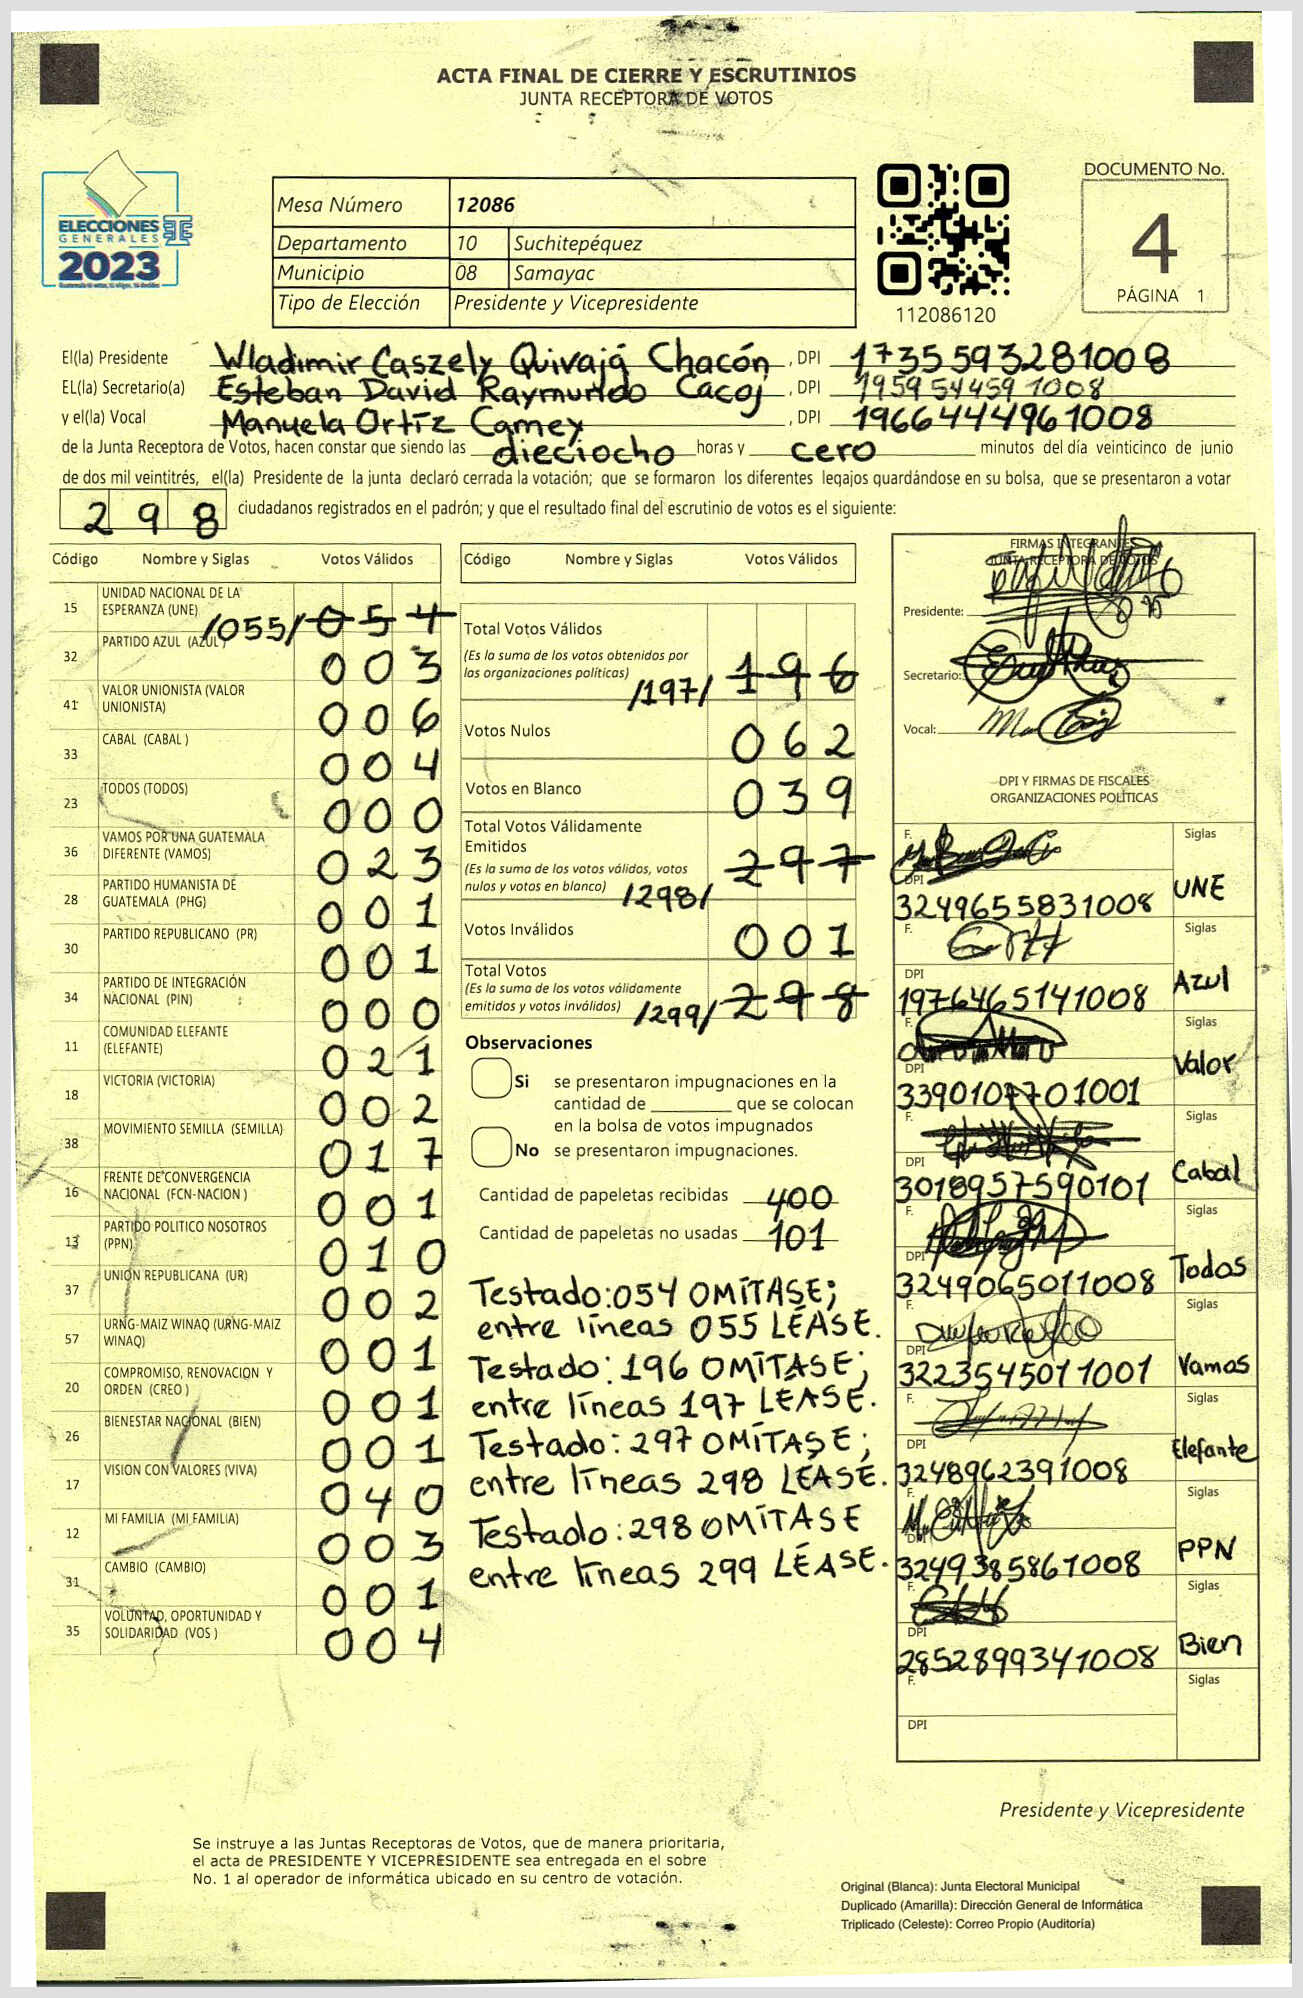 ACTA FINAL DE CIERRE Y ESCRUTINIOS
JUNTA RECEPTORA DE VOTOS
ELECCIONES
GENERALES
2023
Mesa Número 12086
Departamento 10 Suchitepéquez
Municipio 08 Samayac
Tipo de Elección Presidente y Vicepresidente
112086120
DOCUMENTO No.
4
PÁGINA 1
El(la) Presidente Wladimir Caszely Quivajá Chacón, DPI 1735593281008
EL(la) Secretario(a) Esteban David Raymundo Cacoj, DPI 1959544591008
y el(la) Vocal Manuela Ortíz Camey, DPI 1966444961008
de la Junta Receptora de Votos, hacen constar que siendo las dieciocho horas y cero minutos del día veinticinco de junio
de dos mil veintitrés, el(la) Presidente de la junta declaró cerrada la votación; que se formaron los diferentes legajos guardándose en su bolsa, que se presentaron a votar
298 ciudadanos registrados en el padrón; y que el resultado final del escrutinio de votos es el siguiente:
Código Nombre y Siglas Votos Válidos
15 UNIDAD NACIONAL DE LA ESPERANZA (UNE) /055/ 054
32 PARTIDO AZUL (AZUL) 003
41 VALOR UNIONISTA (VALOR UNIONISTA) 006
33 CABAL (CABAL) 004
23 TODOS (TODOS) 000
36 VAMOS POR UNA GUATEMALA DIFERENTE (VAMOS) 023
28 PARTIDO HUMANISTA DE GUATEMALA (PHG) 001
30 PARTIDO REPUBLICANO (PR) 001
34 PARTIDO DE INTEGRACIÓN NACIONAL (PIN) 000
11 COMUNIDAD ELEFANTE (ELEFANTE) 021
18 VICTORIA (VICTORIA) 002
38 MOVIMIENTO SEMILLA (SEMILLA) 017
16 FRENTE DE CONVERGENCIA NACIONAL (FCN-NACION) 001
13 PARTIDO POLITICO NOSOTROS (PPN) 010
37 UNION REPUBLICANA (UR) 002
57 URNG-MAIZ WINAQ (URNG-MAIZ WINAQ) 001
20 COMPROMISO, RENOVACION Y ORDEN (CREO) 001
26 BIENESTAR NACIONAL (BIEN) 001
17 VISION CON VALORES (VIVA) 040
12 MI FAMILIA (MI FAMILIA) 003
31 CAMBIO (CAMBIO) 001
35 VOLUNTAD, OPORTUNIDAD Y SOLIDARIDAD (VOS) 004
Código Nombre y Siglas Votos Válidos
Total Votos Válidos
(Es la suma de los votos obtenidos por
las organizaciones políticas) /197/ 196
Votos Nulos 062
Votos en Blanco 039
Total Votos Válidamente
Emitidos
(Es la suma de los votos válidos, votos
nulos y votos en blanco) /298/ 297
Votos Inválidos 001
Total Votos
(Es la suma de los votos válidamente
emitidos y votos inválidos) /299/ 298
Observaciones
Si se presentaron impugnaciones en la
cantidad de ________ que se colocan
en la bolsa de votos impugnados
No se presentaron impugnaciones.
Cantidad de papeletas recibidas 400
Cantidad de papeletas no usadas 101
Testado: 054 OMÍTASE;
entre líneas 055 LÉASE.
Testado: 196 OMÍTASE;
entre líneas 197 LEASE.
Testado: 297 OMÍTASE;
entre líneas 298 LÉASE.
Testado: 298 OMÍTASE
entre líneas 299 LÉASE.
FIRMAS INTEGRANTES
JUNTA RECEPTORA DE VOTOS
Presidente:
Secretario:
Vocal:
DPI Y FIRMAS DE FISCALES
ORGANIZACIONES POLÍTICAS
F. Siglas
DPI 3249655831008 UNE
F. Siglas
DPI 1976465141008 Azul
F. Siglas
DPI 3390107701001 Valor
F. Siglas
DPI 3018957590101 Cabal
F. Siglas
DPI 3249065011008 Todos
F. Siglas
DPI 3223545011001 Vamos
F. Siglas
DPI 3248962391008 Elefante
F. Siglas
DPI 3249385861008 PPN
F. Siglas
DPI 2852899341008 Bien
F. Siglas
DPI
Presidente y Vicepresidente
Se instruye a las Juntas Receptoras de Votos, que de manera prioritaria,
el acta de PRESIDENTE Y VICEPRESIDENTE sea entregada en el sobre
No. 1 al operador de informática ubicado en su centro de votación.
Original (Blanca): Junta Electoral Municipal
Duplicado (Amarilla): Dirección General de Informática
Triplicado (Celeste): Correo Propio (Auditoría)